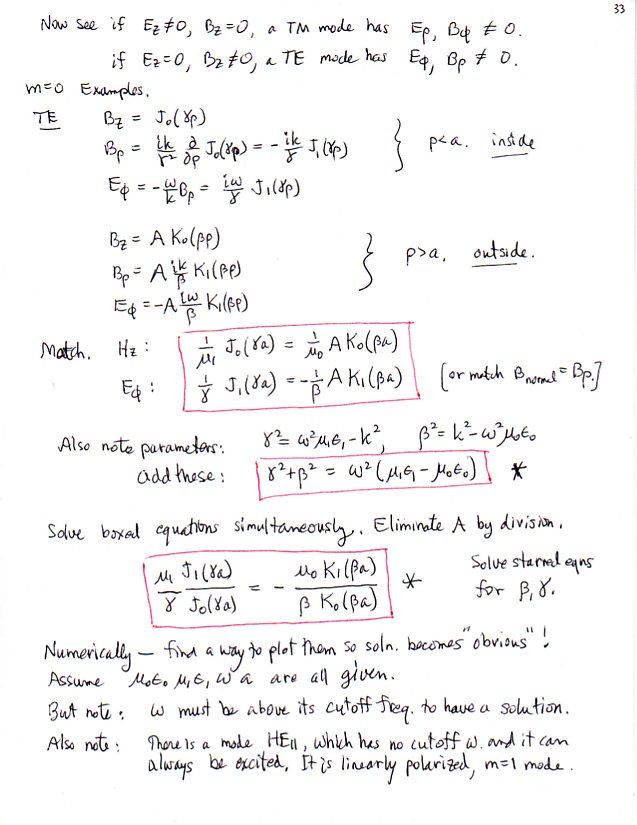 33
Now see if Ez≠0, Bz=0, a TM mode has Eρ, Bφ ≠ 0.
if Ez=0, Bz≠0, a TE mode has Eφ, Bρ ≠ 0.
m=0 Examples.
TE Bz = J₀(γρ)
Bρ = ik/γ² ∂/∂ρ J₀(γρ) = - ik/γ J₁(γρ) } ρ<a. inside
Eφ = - ω/k Bρ = iω/γ J₁(γρ)
Bz = A K₀(βρ)
Bρ = A ik/β K₁(βρ) } ρ>a, outside.
Eφ = -A iω/β K₁(βρ)
Match. Hz: 1/μ₁ J₀(γa) = 1/μ₀ A K₀(βa)
Eφ: 1/γ J₁(γa) = - 1/β A K₁(βa) [or match Bnormal = Bρ.]
Also note parameters: γ² = ω²μ₁ϵ₁ - k², β² = k² - ω²μ₀ϵ₀
add these: γ²+β² = ω²(μ₁ϵ₁ - μ₀ϵ₀) *
Solve boxed equations simultaneously. Eliminate A by division.
μ₁/γ J₁(γa)/J₀(γa) = - μ₀ K₁(βa)/β K₀(βa) * Solve starred eqns
for β, γ.
Numerically — find a way to plot them so soln. becomes "obvious"!
Assume μ₀ϵ₀ μ₁ϵ₁ ω a are all given.
But note: ω must be above its cutoff freq. to have a solution.
Also note: There is a mode HE₁₁, which has no cutoff ω. and it can
always be excited. It is linearly polarized, m=1 mode.